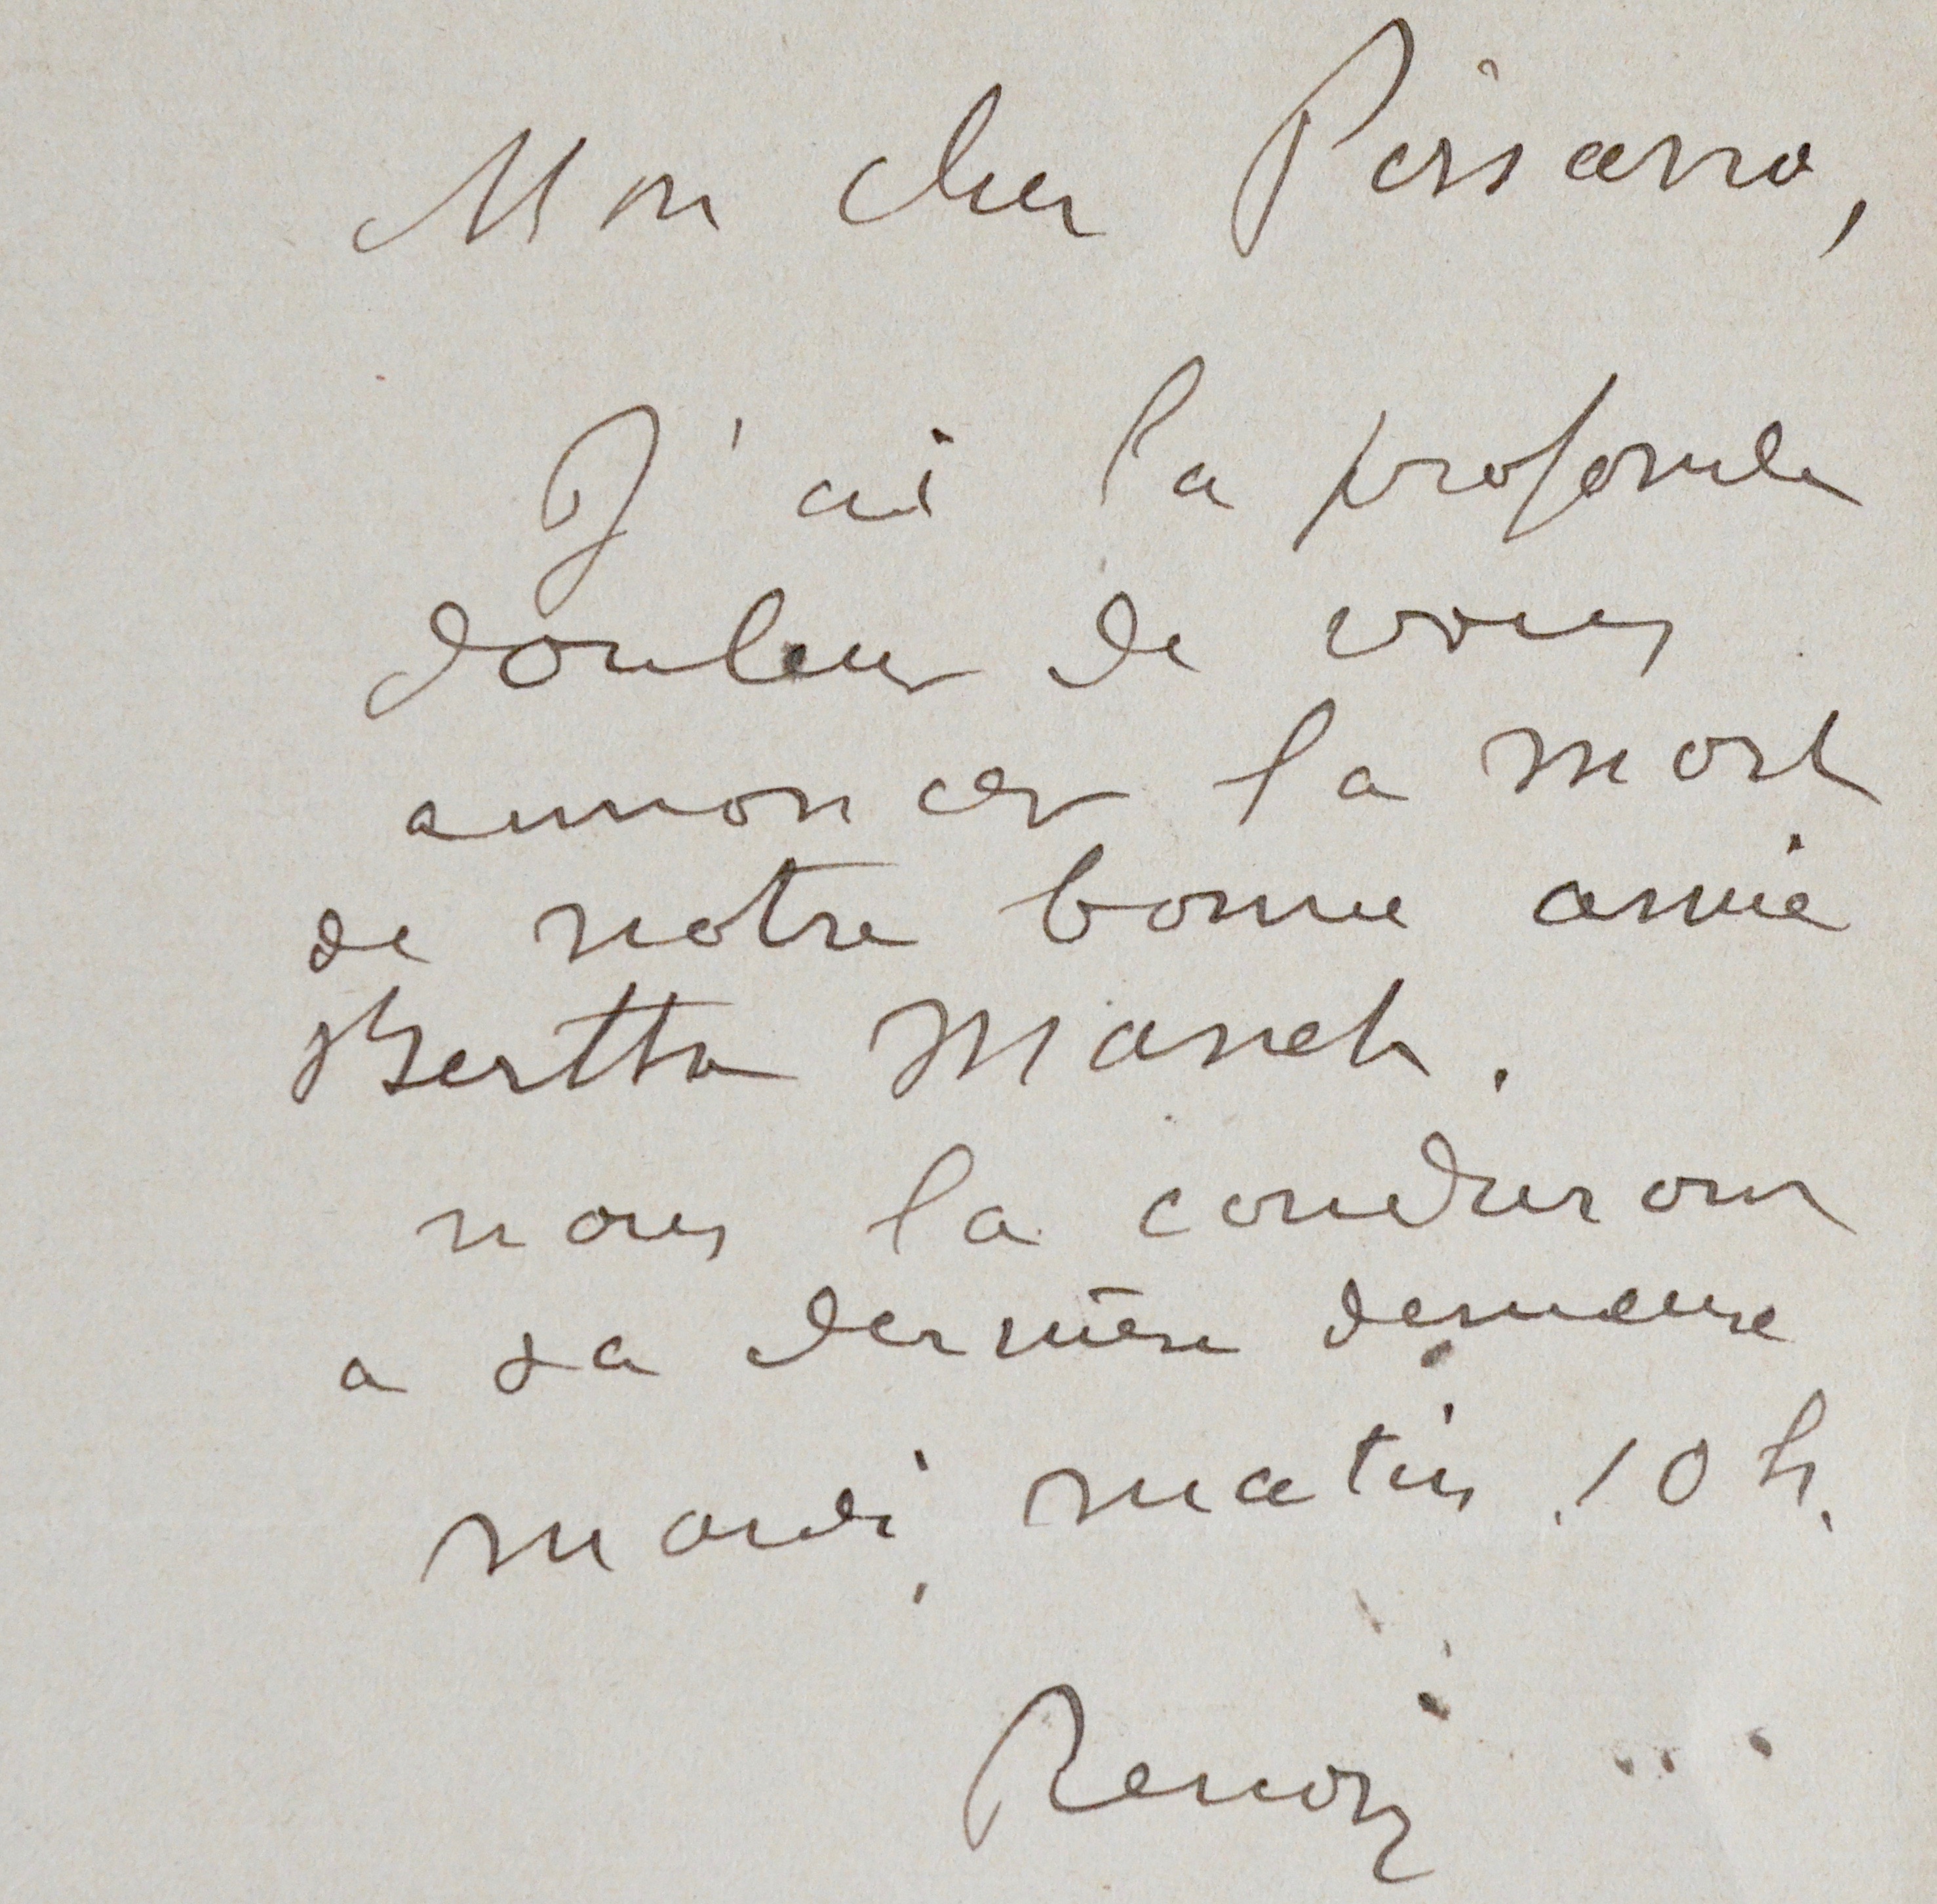 Mon cher Pissarro,
J'ai la profonde
douleur de vous
annoncer la mort
de notre bonne amie
Berthe Manet.
nous la condurons
a sa dernière demeure
mardi matin 10 h.
Renoir